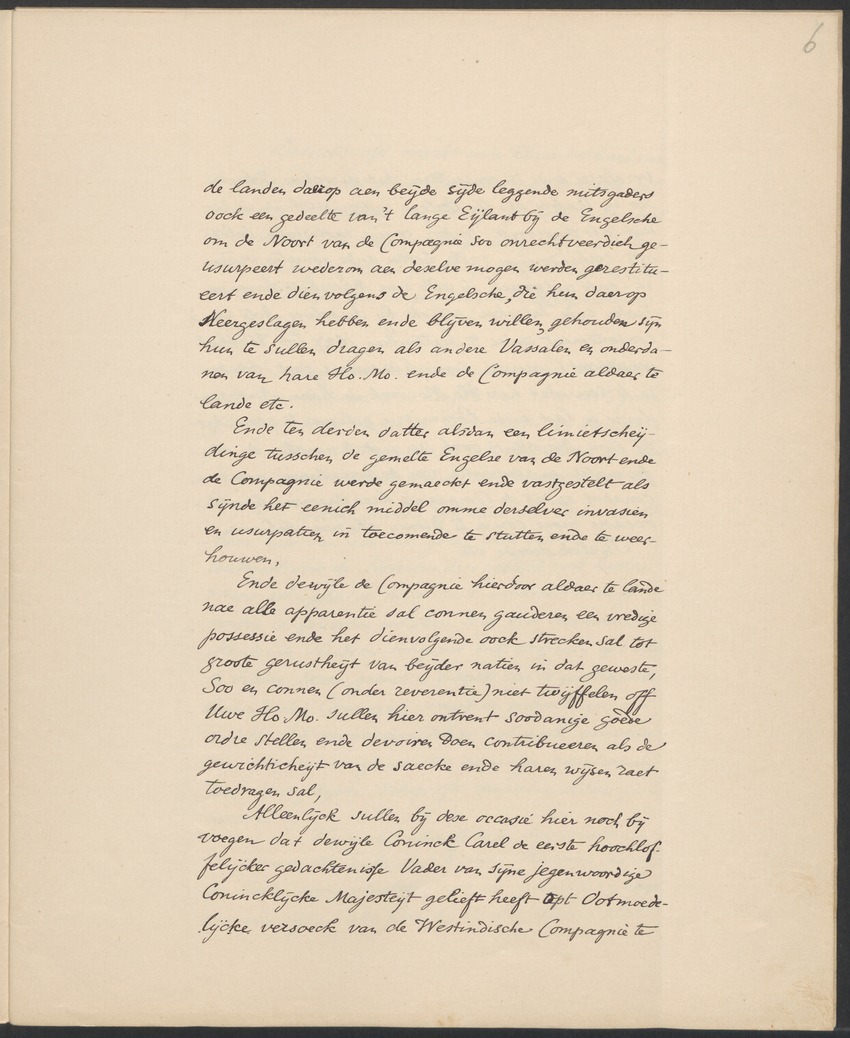 6
de landen daerop aen beijde sijde leggende mitsgaders
oock een gedeelte van't lange Eijlant bij de Engelsche
om de Noort van de Compagnie soo onrechtveerdich ge-
usurpeert wederom aen deselve mogen werden gerestitu-
eert ende dienvolgens de Engelsche, die hun daerop
Neergeslagen hebben ende blijven willen, gehouden sijn
hun te sullen dragen als andere Vassalen en onderda-
nen van hare Ho. Mo. ende de Compagnie aldaer te
lande etc.
Ende ten derden datter alsdan een limietscheij-
dinge tusschen de gemelte Engelse van de Noort ende
de Compagnie werde gemaeckt ende vastgestelt als
sijnde het eenich middel omme derselver invasien
en usurpatien in toecomende te stutten ende te weer-
houwen,
Ende dewijle de Compagnie hierdoor aldaer te lande
nae alle apparentie sal connen gauderen een vredige
possessie ende het dienvolgende oock strecken sal tot
groote gerustheijt van beijder natien in dat geweste,
Soo en connen (onder reverentie) niet twijffelen off
Uwe Ho. Mo. sullen hier ontrent soodanige goede
ordre stellen ende devoiren doen contribueeren als de
gewichticheijt van de saecke ende haren wijsen raet
toedragen sal,
Alleenlijck sullen bij dese occasie hier noch bij
voegen dat dewijle Coninck Carel de eerste hoochlof-
felijcker gedachtenisse Vader van sijne jegenwoordige
Conincklijcke Majesteijt gelieft heeft opt Ootmoede-
lijcke versoeck van de Westindische Compagnie te